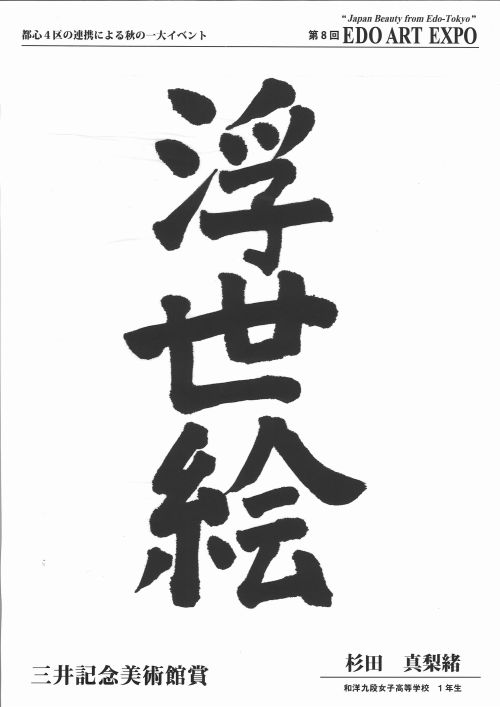 都心4区の連携による秋の一大イベント
"Japan Beauty from Edo-Tokyo"
第8回 EDO ART EXPO
浮世絵
三井記念美術館賞
杉田 真梨緒
和洋九段女子高等学校 1年生